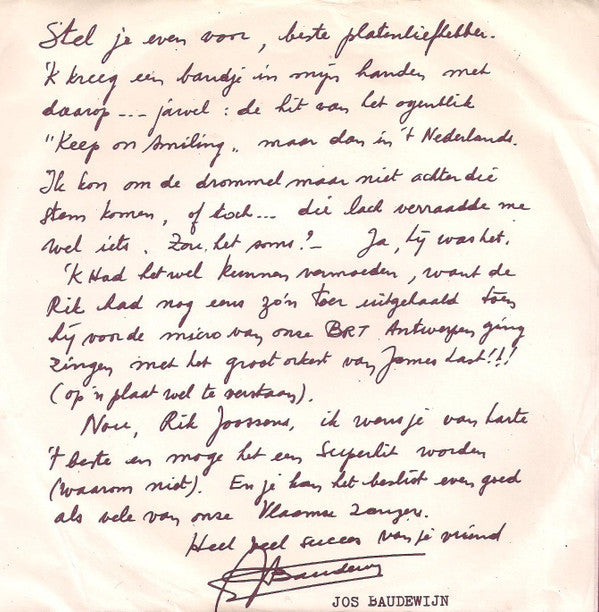 Stel je even voor, beste platenliefhebber.
'k kreeg een bandje in mijn handen met
daarop --- jawel : de hit van het ogenblik
"Keep on smiling„ maar dan in 't Nederlands.
Ik kon om de drommel maar niet achter die
stem komen, of toch... die lach verraadde me
wel iets. Zou het soms?- Ja, hij was het.
'k Had het wel kunnen vermoeden, want de
Rik had nog eens zo'n toer uitgehaald toen
hij voor de micro van onze BRT Antwerpen ging
zingen met het groot orkest van James Last!!!
(op 'n plaat wel te verstaan).
Nou, Rik Joossens, ik wens je van harte
't beste en moge het een superhit worden
(waarom niet). En je kan het beslist even goed
als vele van onze Vlaamse zangers.
Heel veel succes van je vriend
J Baudewijn
JOS BAUDEWIJN